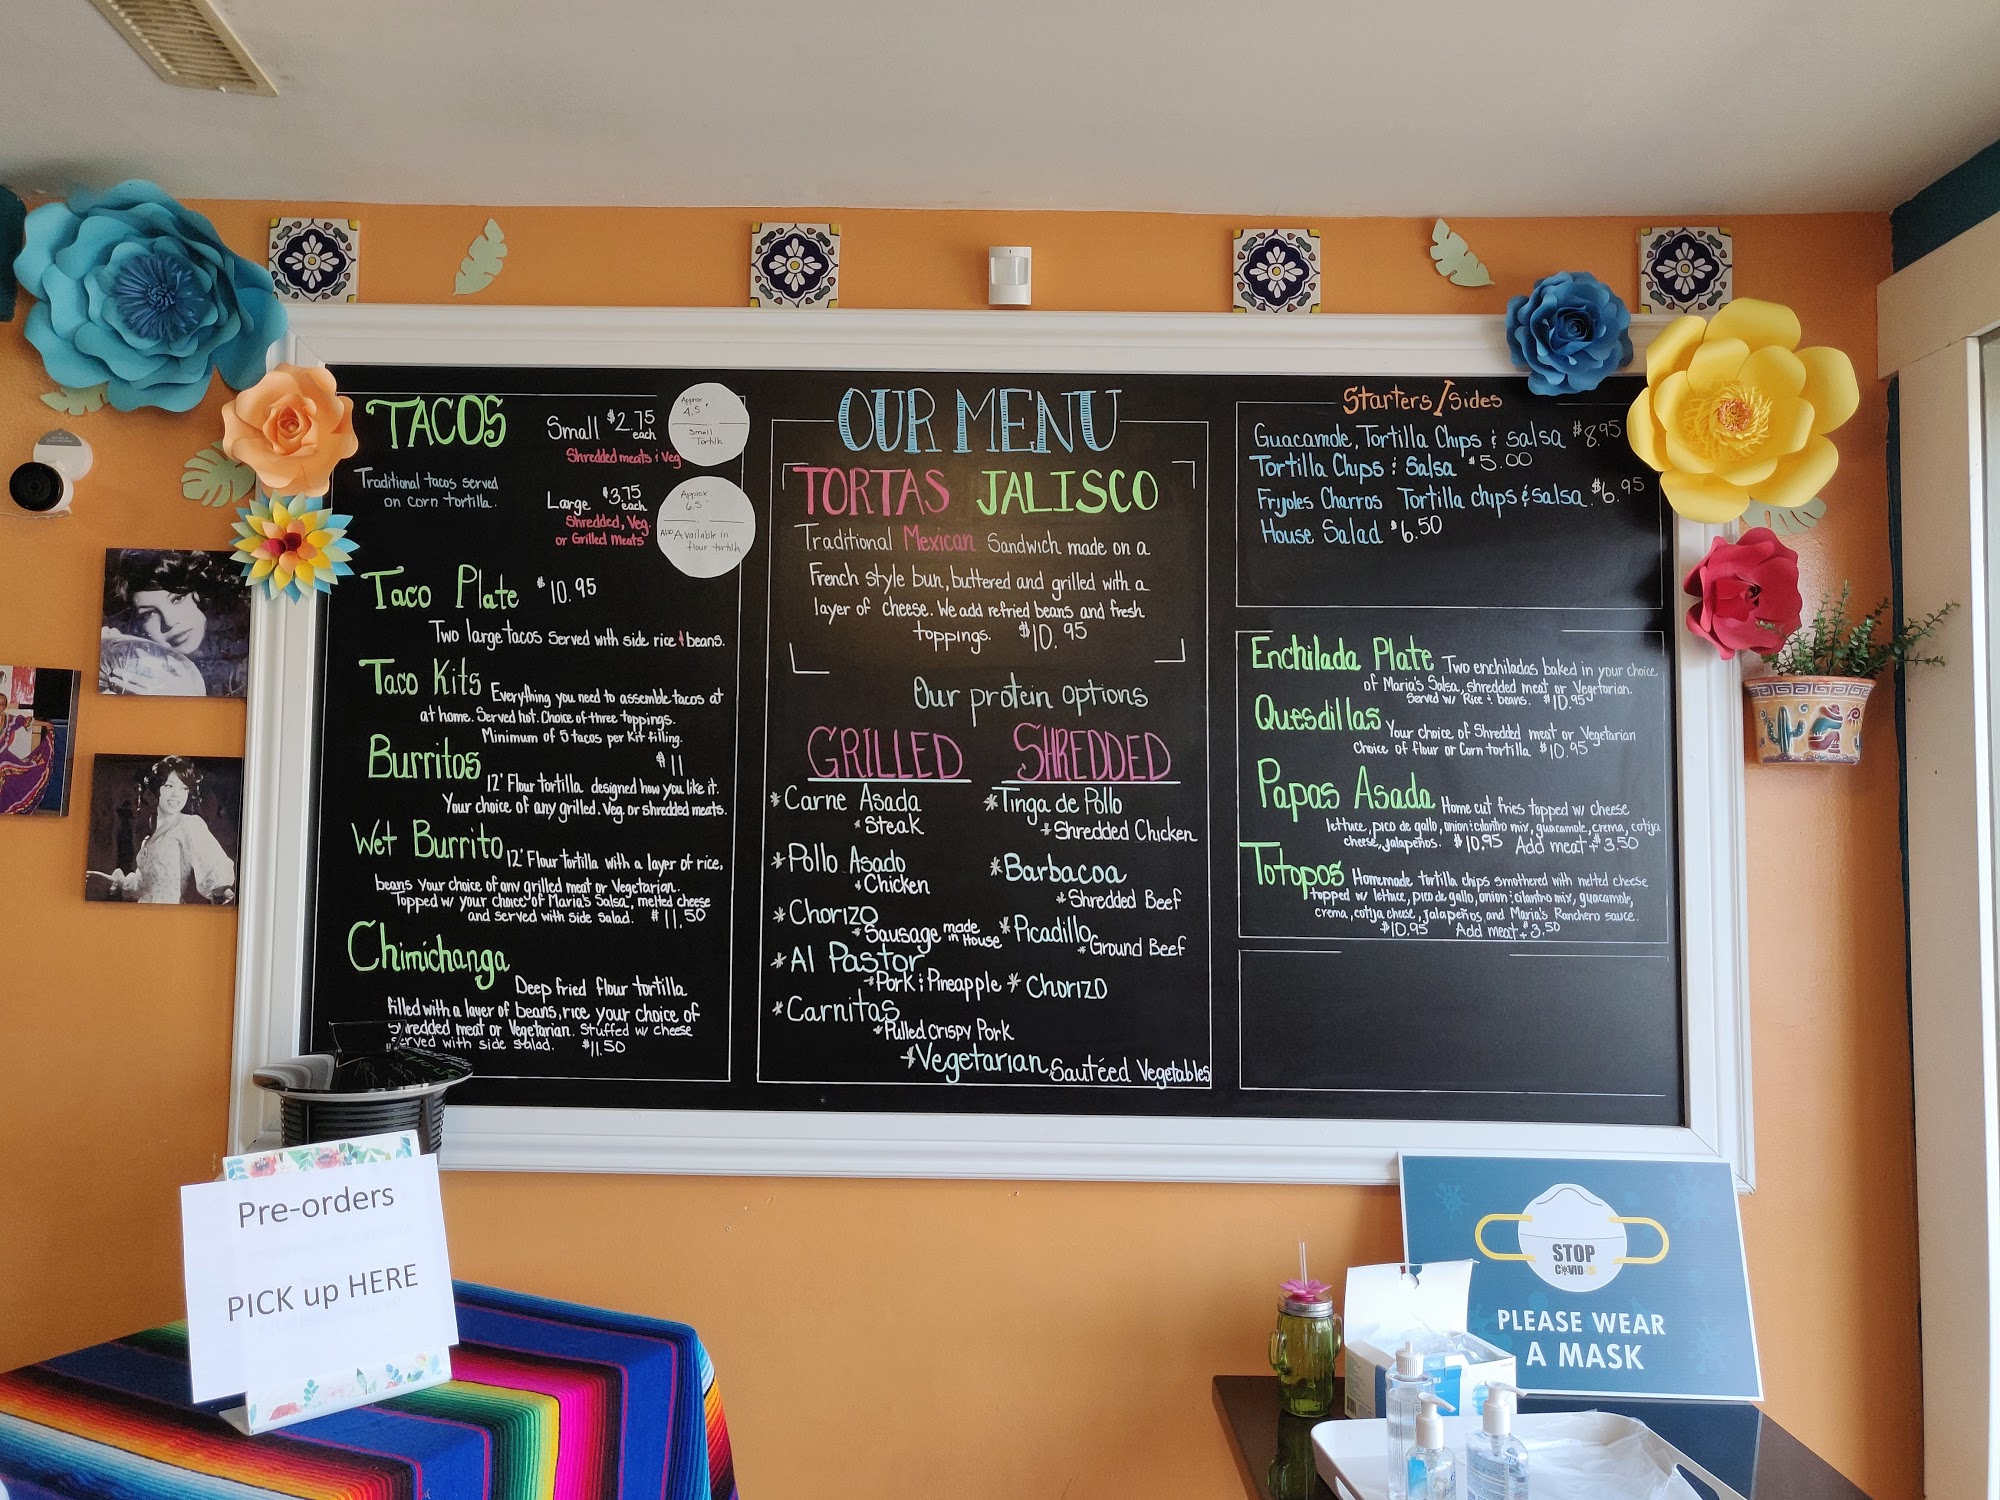 TACOS
Traditional tacos served
on corn tortilla.
Small $2.75
each
Shredded meats & Veg
Approx
4.5"
Small
Tortilla
Large $3.75
each
Shredded, Veg.
or Grilled Meats
Approx
6.5"
Also Available in
flour tortilla
Taco Plate $10.95
Two large tacos served with side rice & beans.
Taco Kits Everything you need to assemble tacos at
at home. Served hot. Choice of three toppings.
Minimum of 5 tacos per kit filling.
Burritos $11
12" Flour tortilla designed how you like it.
Your choice of any grilled. Veg. or shredded meats.
Wet Burrito 12" Flour tortilla with a layer of rice,
beans your choice of any grilled meat or Vegetarian.
Topped w/ your choice of Maria's Salsa, melted cheese
and served with side salad. $11.50
Chimichanga
Deep fried flour tortilla
filled with a layer of beans, rice your choice of
Shredded meat or Vegetarian. Stuffed w/ cheese
served with side salad. $11.50
OUR MENU
TORTAS JALISCO
Traditional Mexican Sandwich made on a
French style bun, buttered and grilled with a
layer of cheese. We add refried beans and fresh
toppings. $10.95
Our protein options
GRILLED
*Carne Asada
*Steak
*Pollo Asado
*Chicken
*Chorizo
*Sausage made in House
*Al Pastor
*Pork & Pineapple
*Carnitas
*Pulled crispy Pork
SHREDDED
*Tinga de Pollo
*Shredded Chicken
*Barbacoa
*Shredded Beef
*Picadillo
*Ground Beef
*Chorizo
*Vegetarian Sautéed Vegetables
Starters/Sides
Guacamole, Tortilla Chips & salsa $8.95
Tortilla Chips & Salsa $5.00
Fryoles Charros Tortilla chips & salsa $6.95
House Salad $6.50
Enchilada Plate Two enchiladas baked in your choice
of Maria's Salsa, shredded meat or Vegetarian.
Served w/ Rice & beans. $10.95
Quesdillas Your choice of Shredded meat or Vegetarian
Choice of flour or Corn tortilla $10.95
Papas Asada Home cut fries topped w/ cheese
lettuce, pico de gallo, onion & cilantro mix, guacamole, crema, cotija
cheese, jalapeños. $10.95 Add meat + $3.50
Totopos Homemade tortilla chips smothered with melted cheese
topped w/ lettuce, pico de gallo, onion & cilantro mix, guacamole,
crema, cotija chuse, jalapeños, and Maria's Ranchero sauce.
$10.95 Add meat + $3.50
Pre-orders
PICK up HERE
STOP
COVID-19
PLEASE WEAR
A MASK